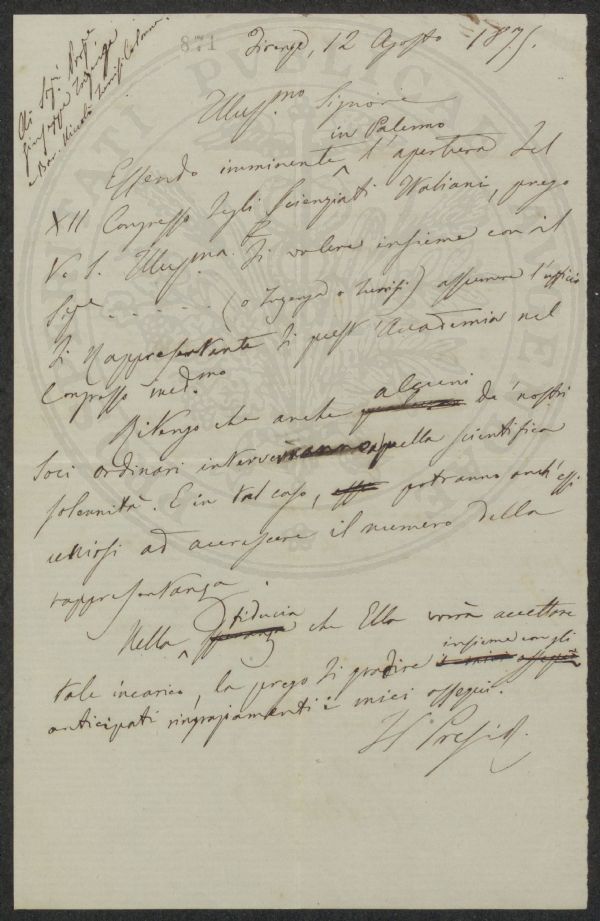 871
Firenze, 12 Agosto 1875.
Ai Sigi. Profe
Giuseppe Inzenga
e Bar. Nicolò Turrisi Colonna.
Illusmo Signore
in Palermo
Essendo imminente ^ l'apertura del
XII Congresso degli Scienziati Italiani, prego
V. S. Illusma. di volere insieme con il
Sige . . . . . . (o Inzenga o Turrisi) assumere l'ufficio
di Rappresentante di quest'Accademia nel
Congresso medmo
Ritengo che anche alcuni da' nostri
Soci ordinari interverranno a quella scientifica
solennità. E in tal caso, potranno anch'essi
unirsi ad accrescere il numero della
rappresentanza.
Nella ^ fiducia che Ella vorrà accettare
tale incarico, la prego di gradire insieme con gli
anticipati ringraziamenti i miei ossequi.
Il Presid.